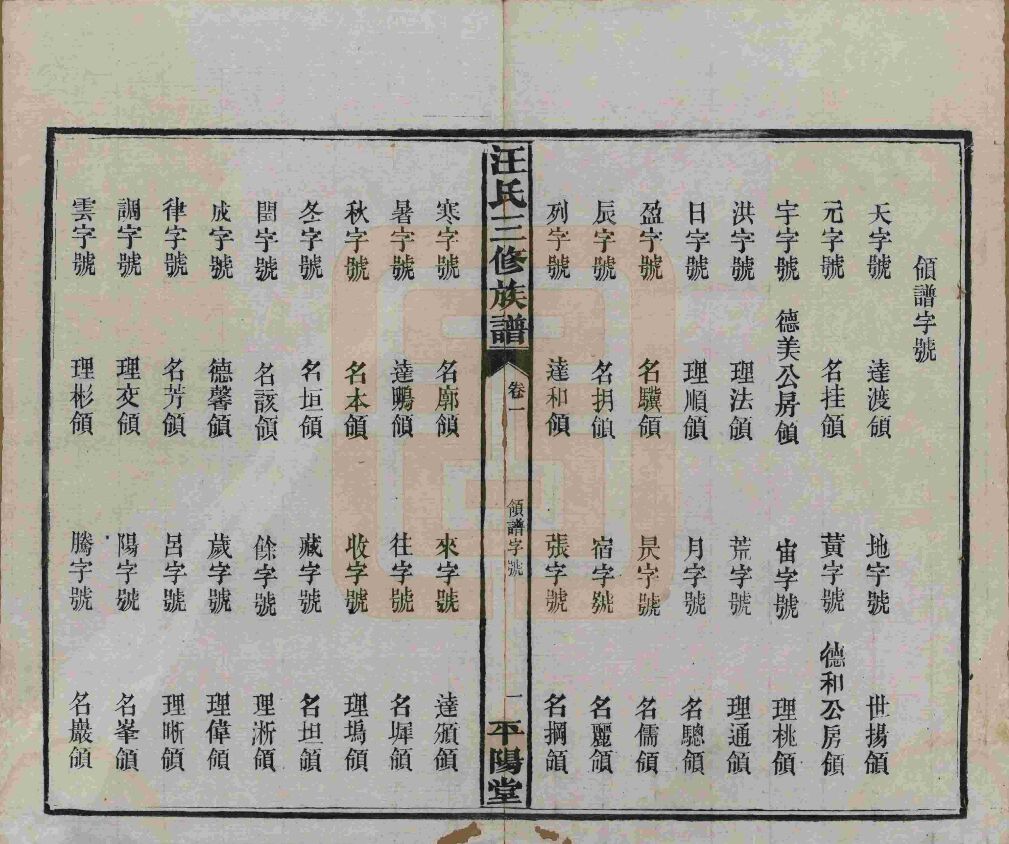 領譜字號
天字號 達渡領 地字號 世揚領
元字號 名挂領 黃字號 德和公房領
宇字號 德美公房領 宙字號 理桃領
洪字號 理法領 荒字號 理通領
日字號 理順領 月字號 名驄領
盈字號 名驥領 昃字號 名儒領
辰字號 名抈領 宿字號 名麗領
列字號 達和領 張字號 名綱領
汪氏三修族譜 卷一 領譜字號 一 平陽堂
寒字號 名廓領 來字號 達頒領
暑字號 達鵬領 往字號 名墀領
秋字號 名本領 收字號 理塢領
冬字號 名垣領 藏字號 名坦領
閏字號 名該領 餘字號 理淅領
成字號 德馨領 歲字號 理偉領
律字號 名芳領 呂字號 理晰領
調字號 理交領 陽字號 名峯領
雲字號 理彬領 騰字號 名巖領